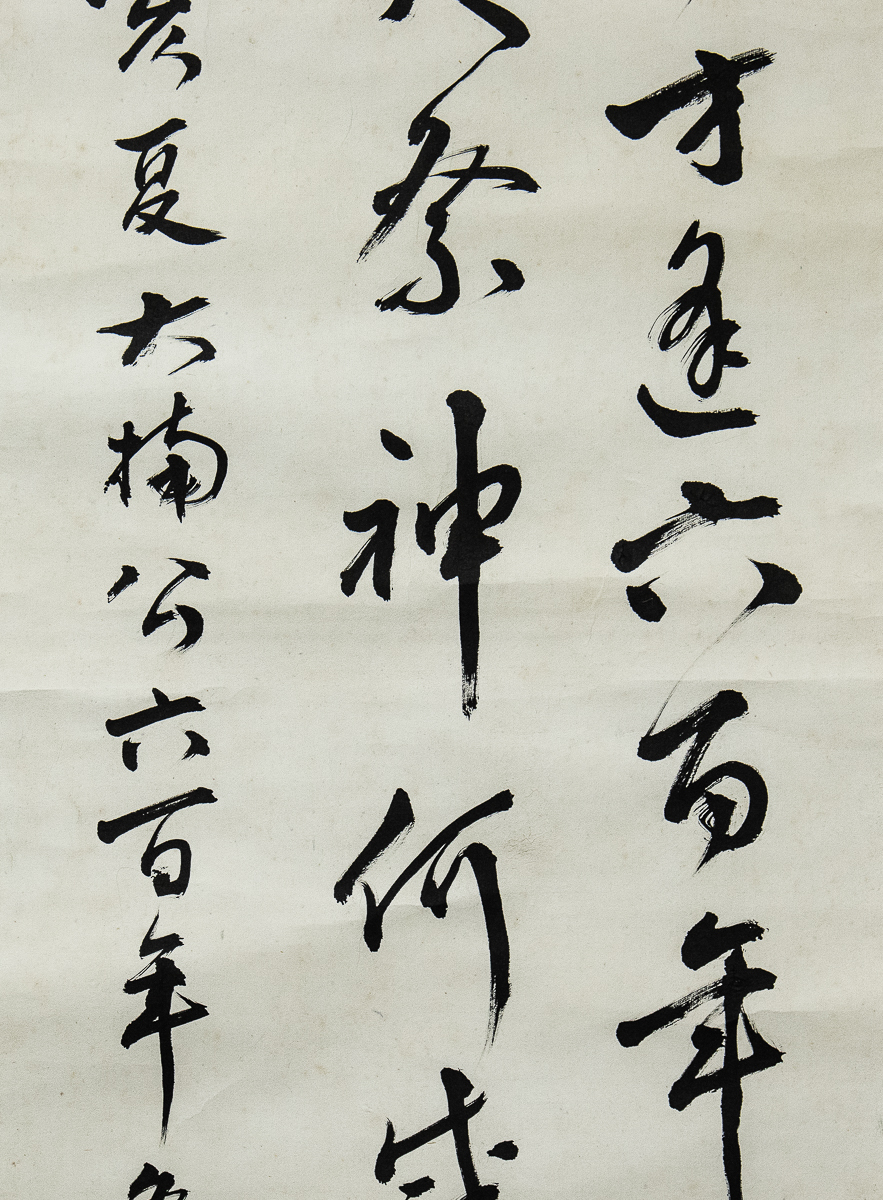 才逢六百年
祭神何盛
夏大楠公六百年